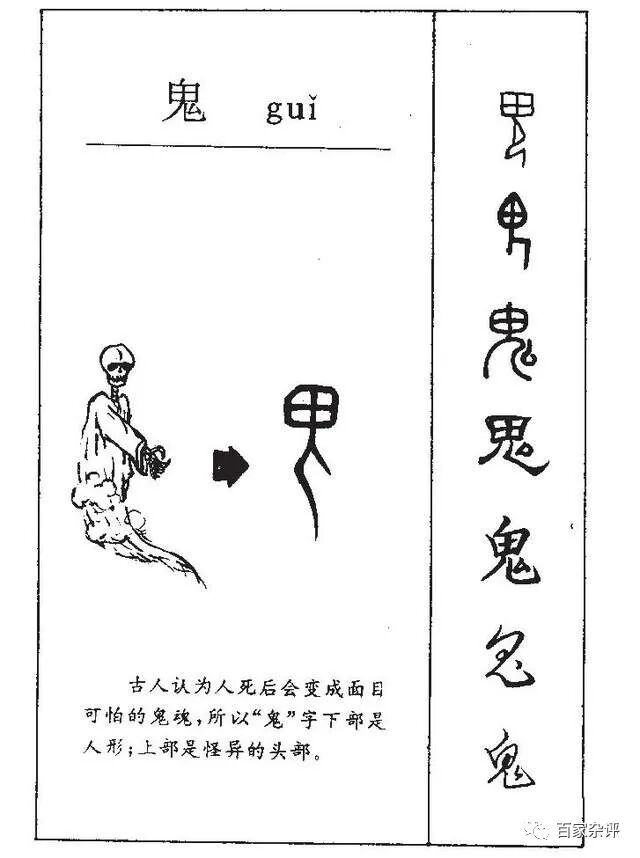 鬼 guǐ
古人认为人死后会变成面目
可怕的鬼魂,所以“鬼”字下部是
人形;上部是怪异的头部。
鬼
鬼
鬼
鬼
鬼
鬼
鬼
鬼
百家杂评